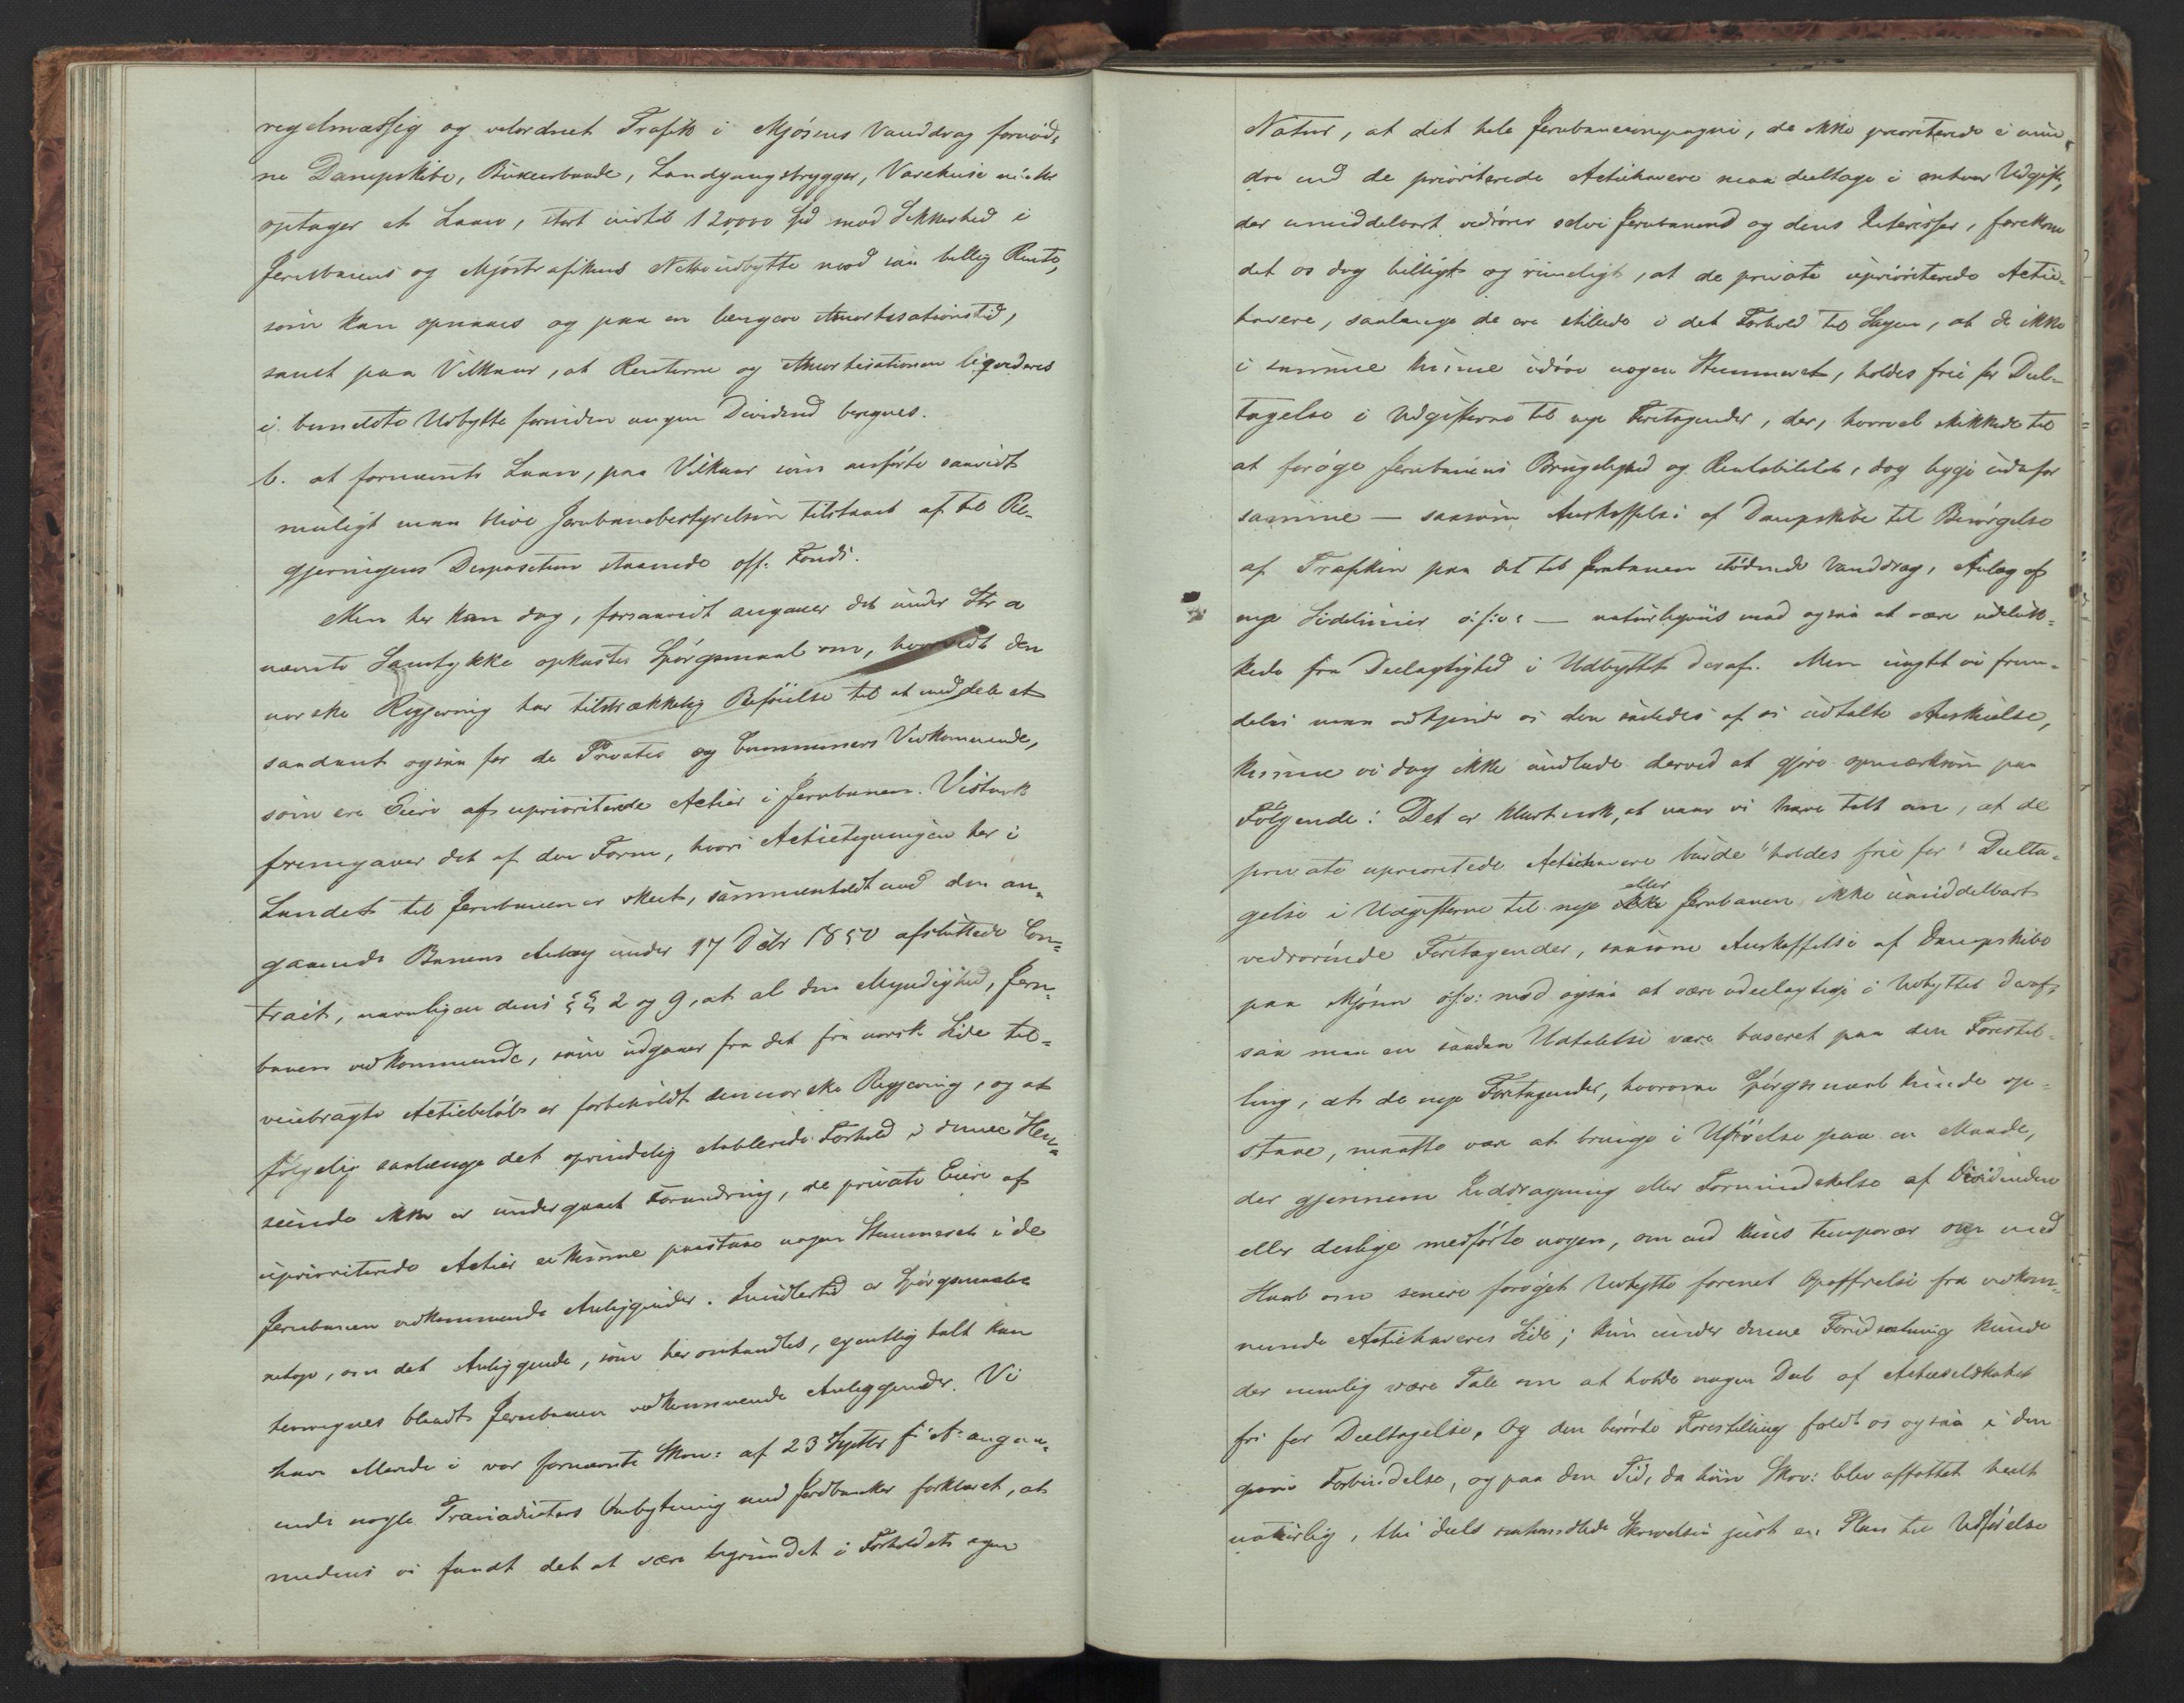 regelmæssig og velordnet Trafik i Mjösens Vanddrag fornöd-
ne Dampskibe, Buxeerbaade, Landgangsbrygger, Varehuse m: v:
optager et Laan, stort indtil 120,000 Spd mod Sikkerhed i
Jernbanens og Mjöstrafikens Nettoudbytte mod saa billig Rente,
som kan opnaaes og paa en længere Amortisationstid,
samt paa Vilkaar, at Renterne og Amortisationen liqvideres
i bemeldte Udbytte forinden nogen Dividend beregnes.
b. at fornævnte Laan, paa Vilkaar som anförte saavidt
muligt maa blive Jernbanebestyrelsen tilstaaet af til Re-
gjeringens Disposition staaende off: Fonds.
Men her kan dog, forsaavidt angaaer det under Litr a
nævnte Samtykke opkastes Spörgsmaal om, hvorvidt den
norske Regjering har tilstrækkelig Beföielse til at meddele et
saadant ogsaa for de Privates og Communers Vedkommende,
som ere Eiere af uprioriterede Actier i Jernbanen. Vistnok
fremgaaer det af den Form, hvori Actietegningen her i
Landet til Jernbanen er skeet, sammenholdt med den an-
gaaende Banens Anlæg under 17 Decbr 1850 afsluttede Con-
tract, navnligen dens §§ 2 og 9, at al den Myndighed, Jern-
banen vedkommende, som udgaaer fra det fra norsk Side til-
veiebragte Actiebelöb er forbeholdt den norske Regjering, og at
fölgelig saalænge det oprindelig etablerede Forhold i denne Hen-
seende ikke er undergaaet Forandring, de private Eiere af
uprioriterede Actier ei kunne paastaae nogen Stemmeret i de
Jernbanen vedkommende Anliggender. Imidlertid er Spörgsmaalet
netop, om det Anliggende, som her omhandles, egentlig talt kan
henregnes blandt Jernbanen vedkommende Anliggender. Vi
have allerede i vor fornævnte Skr: af 23 Septbr f: A: angaa-
ende nogle Ombytning med Jordbanker forklaret, at
medens vi fandt det at være begrundet i Forholdets egen
Natur, at det hele Jernbanecompagni, de ikke prioriterede ei min-
dre end de prioriterede Actiehavere maa deeltage i enhver Udgift,
der umiddelbart vedrörer selve Jernbanen og dens Interesser, forekom
det os dog billigt og rimeligt, at de private uprioriterede Actie-
havere, saalænge de ere stillede i det Forhold til Sagen, at de ikke
i samme kunne udöve nogen Stemmeret, holdes frie for Deel-
tagelse i Udgifterne til nye Foretagender, der, hvorvel skikkede til
at foröge Jernbanens Brugelighed og Rentabilitet, dog ligge udenfor
samme — saasom Anskaffelse af Dampskibe til Besörgelse
af Trafiken paa det til Jernbanen stödende Vanddrag, Anlæg af
nye Sidelinier o: s: v: — naturligviis mod ogsaa at være udeluk-
kede fra Deelagtighed i Udbyttet deraf. Men uagtet vi frem-
deles maa vedkjende os den saaledes af os udtalte Anskuelse,
kunne vi dog ikke undlade derved at gjöre opmærksom paa
Fölgende: Det er klart nok, at naar vi have talt om, at de
private uprioriterede Actiehavere burde "holdes frie for" Deelta-
gelse i Udgifterne til nye eller Jernbanen ikke umiddelbart
vedrörende Foretagender, saasom Anskaffelse af Dampskibe
paa Mjösen o: s: v: mod ogsaa at være udeelagtige i Udbyttet deraf,
saa maa en saadan Udtalelse være baseret paa den Forestil-
ling, at de nye Foretagender, hvorom Spörgsmaal kunde op-
staae, maatte være at bringe i Udförelse paa en Maade,
der gjennem Inddragning eller Formindskelse af Dividenden
eller deslige medförte nogen, om end kuns temporær og med
Haab om senere foröget Udbytte forenet Opoffrelse fra vedkom-
mende Actiehaveres Side; kun under denne Forudsætning kunde
der nemlig være Tale om at holde nogen Deel af Actieselskabet
fri for Deeltagelse. Og den berörte Forestilling faldt os ogsaa i den
givne Forbindelse, og paa den Tid, da hiin Skr: blev affattet heelt
naturlig, thi deels omhandlede Skrivelsen just en Plan til Udförelse